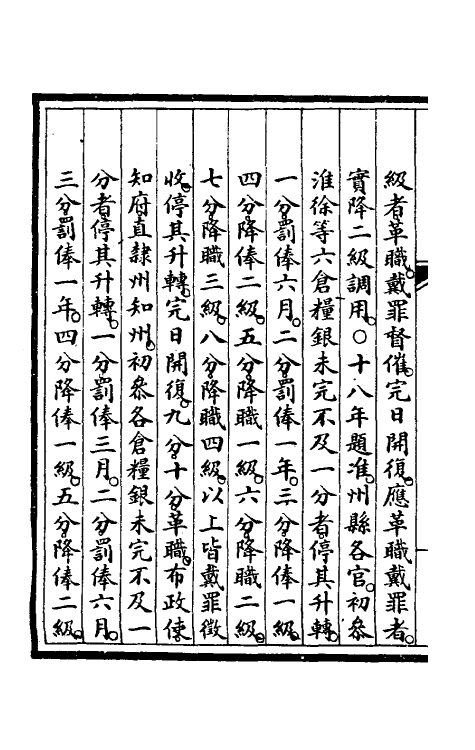 級者革職。戴罪督催。完日開復。應革職戴罪者。
實降二級調用。○十八年題准。州縣各官。初參
淮徐等六倉糧銀未完不及一分者。停其升轉。
一分。罰俸六月。二分。罰俸一年。三分。降俸一級。
四分。降俸二級。五分。降職一級。六分。降職二級。
七分。降職三級。八分。降職四級。以上皆戴罪徵
收。停其升轉。完日開復。九分十分。革職。布政使
知府直隸州知州。初參各倉糧銀未完不及一
分者。停其升轉。一分。罰俸三月。二分。罰俸六月。
三分。罰俸一年。四分。降俸一級。五分。降俸二級。